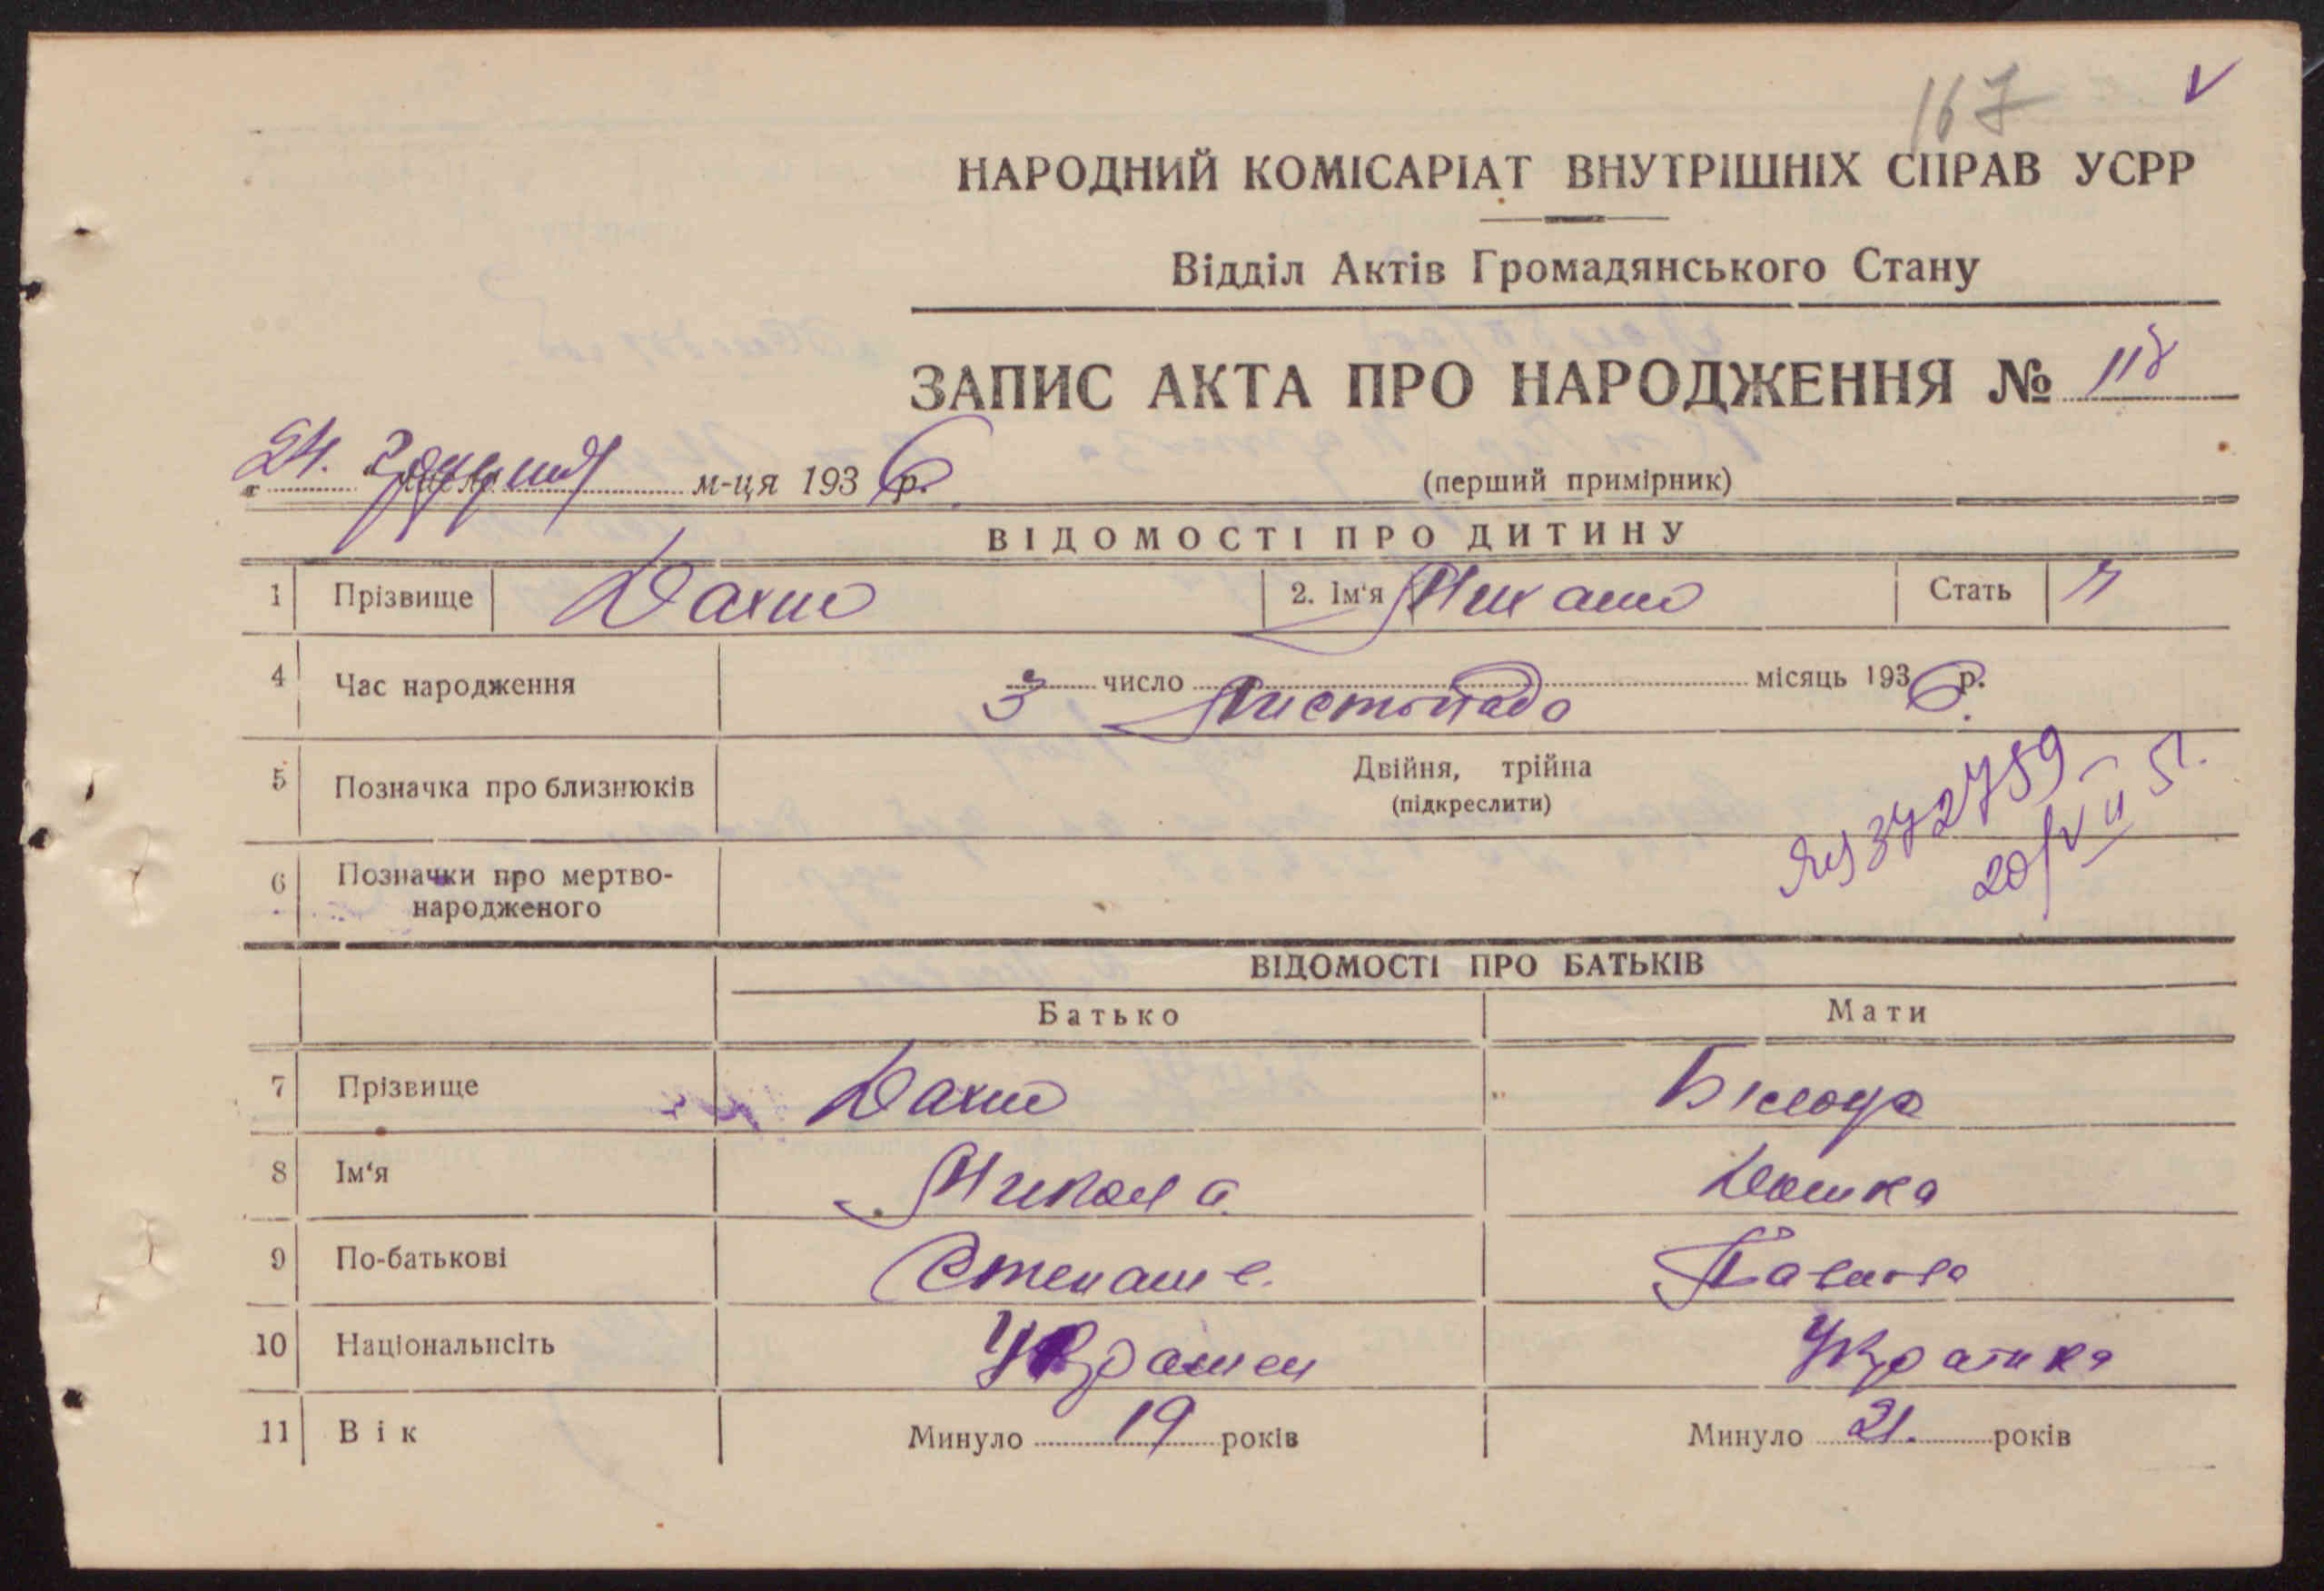 167 V
НАРОДНИЙ КОМІСАРІАТ ВНУТРІШНІХ СПРАВ УСРР
Відділ Актів Громадянського Стану
ЗАПИС АКТА ПРО НАРОДЖЕННЯ № 118
24. грудня м-ця 1936 р. (перший примірник)
ВІДОМОСТІ ПРО ДИТИНУ
1 Прізвище Дахно 2. Ім'я Михаило Стать ч
4 Час народження 3 число Листопада місяць 1936 р.
5 Позначка про близнюків Двійня, трійна
(підкреслити)
372759
20/VII 51.
6 Позначки про мертво-
народженого
ВІДОМОСТІ ПРО БАТЬКІВ
Батько Мати
7 Прізвище Дахно
8 Ім'я Микола
9 По-батькові
10 Національність
11 Вік Минуло 19 років Минуло 21. років